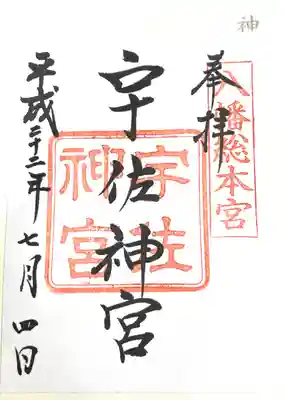 神
奉拝
八幡総本宮
宇佐神宮
宇佐神宮
平成二十二年七月四日